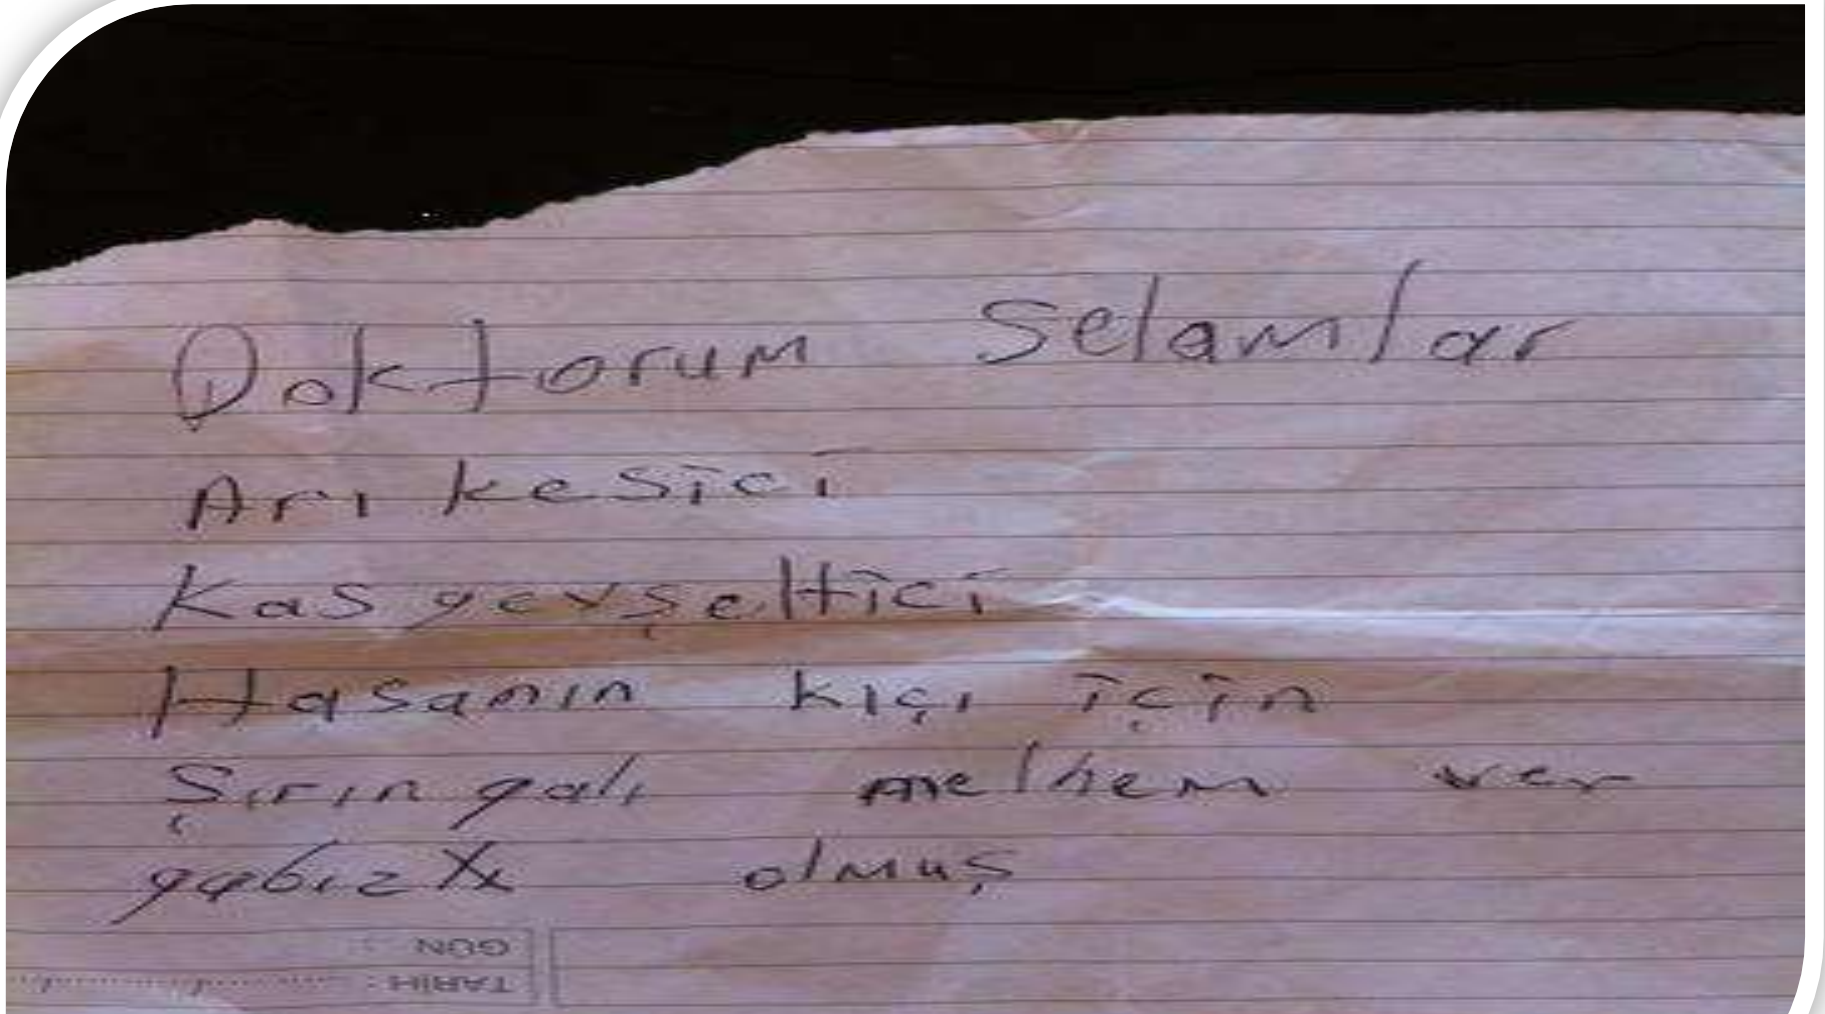 Doktorum Selamlar
Arı kesici
Kas gevşeltici
Hasanın kıçı için
Şırıngalı melhem ver
gabız olmuş
GÜN :
TARİH :